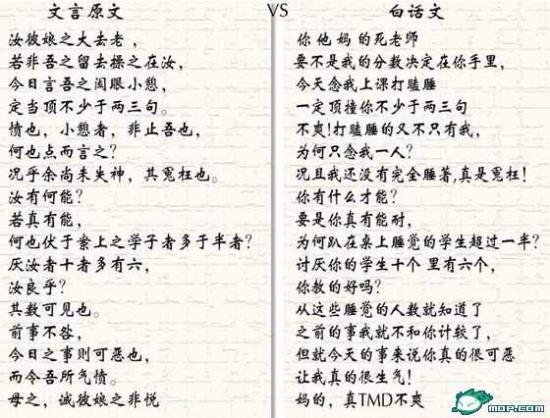 文言原文 VS 白话文
汝彼娘之大去老，
若非吾之留去操之在汝，
今日言吾之闺眼小憩，
定当顶不少于两三句。
愤也，小憩者，非止吾也，
何也点而言之？
况乎余尚未失神，其冤枉也。
汝有何能？
若真有能，
何也伏于案上之学子者多于半者？
厌汝者十者多有六，
汝良乎？
其数可见也。
前事不咎，
今日之事则可恶也，
而令吾所气愤。
母之，诚彼娘之非悦
你他妈的死老师
要不是我的分数决定在你手里，
今天念我上课打瞌睡
一定顶撞你不少于两三句
不爽！打瞌睡的又不只有我，
为何只念我一人？
况且我还没有完全睡著，真是冤枉！
你有什么才能？
要是你真有能耐，
为何趴在桌上睡觉的学生超过一半？
讨厌你的学生十个 里有六个，
你教的好吗？
从这些睡觉的人数就知道了
之前的事我就不和你计较了，
但就今天的事来说你真的很可恶
让我真的很生气！
妈的，真TMD不爽
MOP.COM